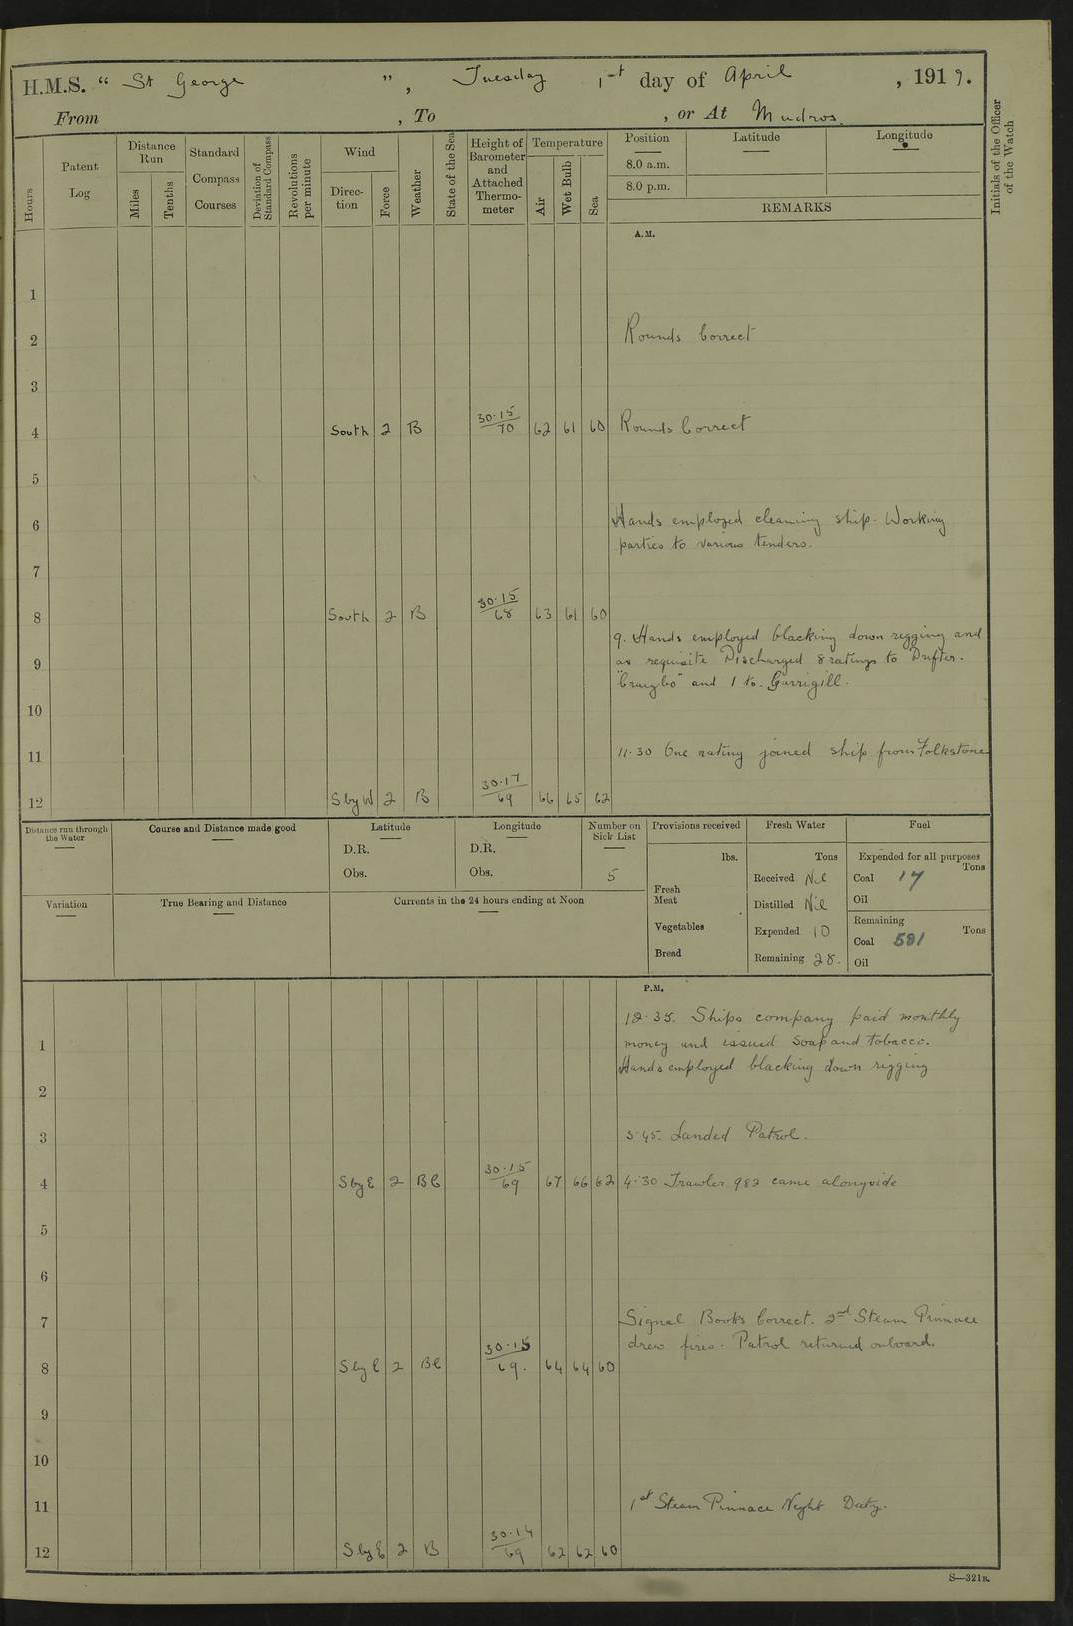 H.M.S. " St George ", Tuesday 1st day of April, 1919.
From , To , or At Mudros.
Hours
Patent Log
Distance Run
Miles
Tenths
Standard Compass Courses
Deviation of Standard Compass
Revolutions per minute
Wind
Direction
Force
Weather
State of the Sea
Height of Barometer and Attached Thermometer
Temperature
Air
Wet Bulb
Sea
Position
8.0 a.m.
8.0 p.m.
Latitude
Longitude
REMARKS
Initials of the Officer of the Watch
A.M.
1
2 Rounds Correct
3
4 South 2 B 30.15/70 62 61 60 Rounds Correct
5
6 Hands employed cleaning ship. Working
parties to various tenders.
7
8 South 2 B 30.15/68 63 61 60
9. Hands employed blacking down rigging and
9 as requisite Discharged 8 ratings to Drifter.
and 1 to. Garrigill.
10
11 11.30 One rating joined ship from Folkstone
12 S by W 2 B 30.17/69 66 65 62
Distance run through the Water
Course and Distance made good
Latitude
D.R.
Obs.
Longitude
D.R.
Obs.
Number on Sick List
5
Provisions received
lbs.
Fresh Meat
Vegetables
Bread
Fresh Water
Tons
Received Nil
Distilled Nil
Expended 10
Remaining 28.
Fuel
Expended for all purposes
Tons
Coal 17
Oil
Remaining
Tons
Coal 591
Oil
Variation
True Bearing and Distance
Currents in the 24 hours ending at Noon
P.M.
12.35. Ships company paid monthly
1 money and issued Soap and tobacco.
Hands employed blacking down rigging
2
3 3.45. Landed Patrol.
4 S by E 2 BC 30.15/69 67 66 62 4.30 Trawler 982 came alongside
5
6
7 Signal Books Correct. 2nd Steam Pinnace
drew fires. Patrol returned onboard.
8 S by E 2 BC 30.15/69. 64 64 60
9
10
11 1st Steam Pinnace Night Duty.
12 S by E 2 B 30.14/69 62 62 60
S—321B.